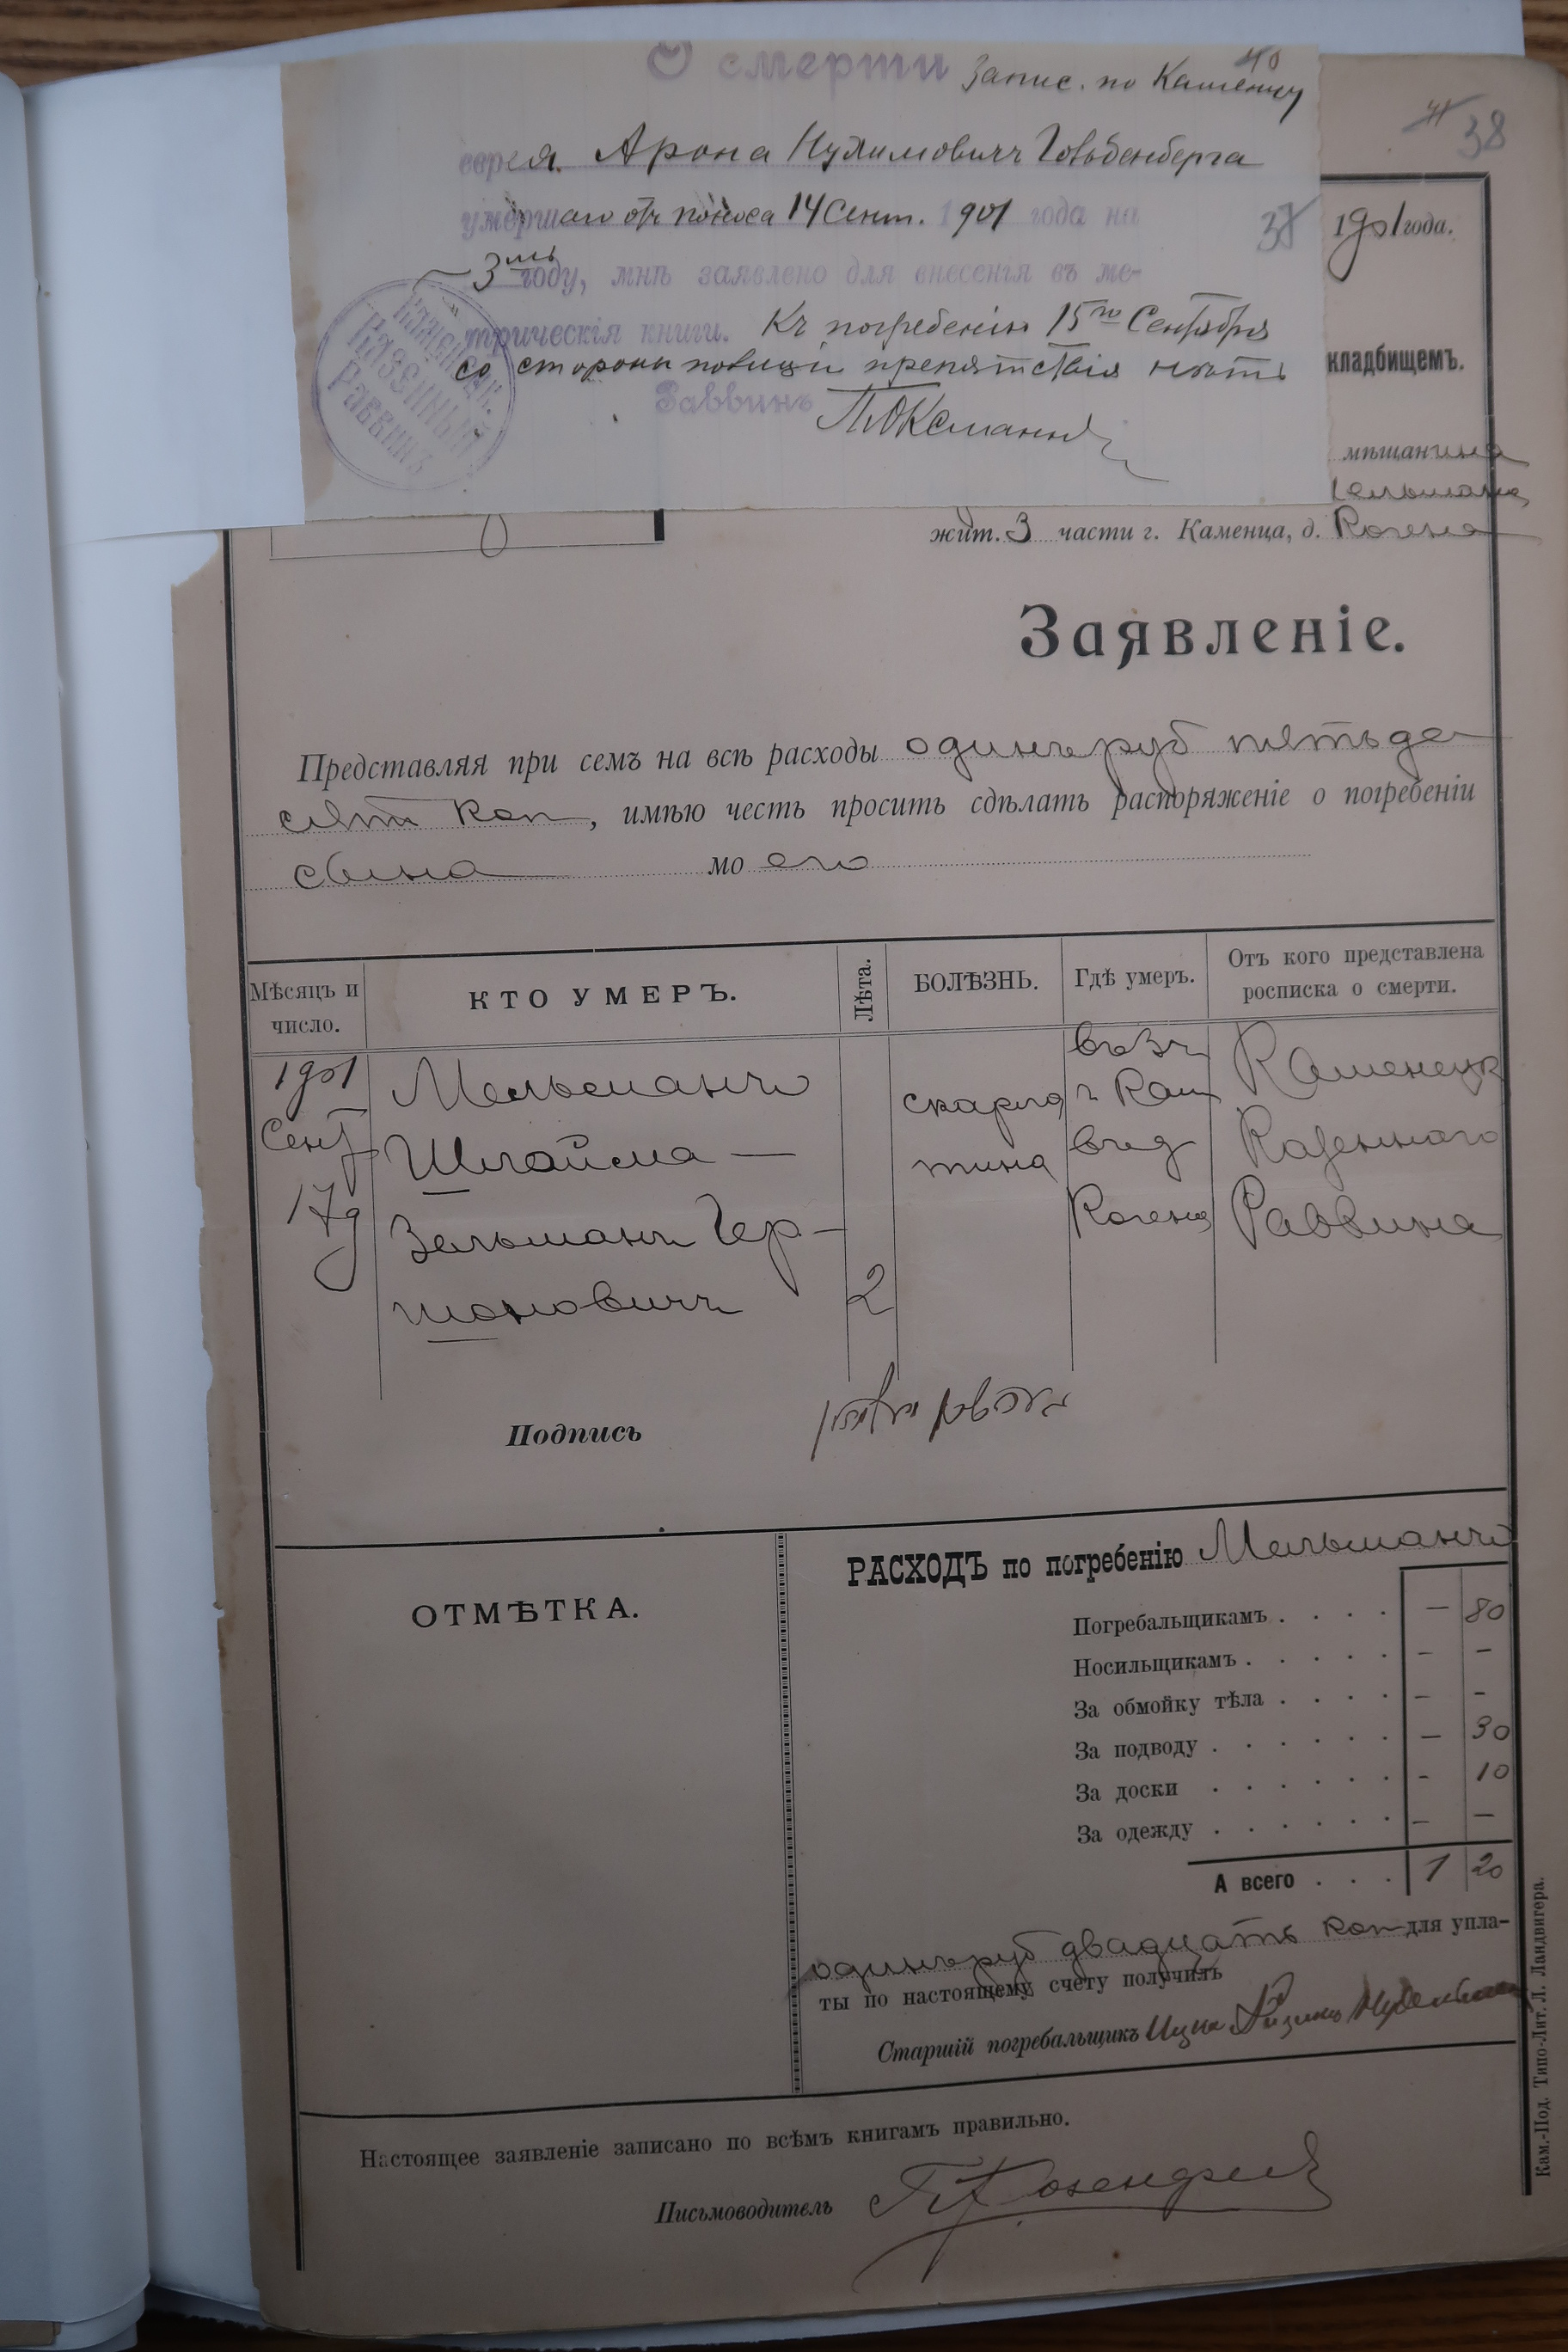 О смерти запис. по Каменцу
40
еврея Арона Нухимовичъ Гольденберга
умершаго отъ поноса 14 Сент. 1901 года на
3мъ году, мнѣ заявлено для внесенія въ ме-
трическія книги. Къ погребенію 15го Сентября
со стороны полиціи препятствія нѣтъ
Раввинъ
КАЗЕННЫЙ
РАВВИНЪ
38
37
1901 года.
кладбищемъ.
мѣщанина
жит. 3 части г. Каменца, д. Когена
Заявленіе.
Представляя при семъ на всѣ расходы одинъ руб пятьде
сятъ коп, имѣю честь просить сдѣлать распоряженіе о погребеніи
сына моего
Мѣсяцъ и число. КТО УМЕРЪ. Лѣта. БОЛѢЗНЬ. Гдѣ умеръ. Отъ кого представлена росписка о смерти.
1901 Мельманъ въ 3ч Каменецк
Сент Шлойма — скарла г Кам Казеннаго
17д Зельманъ Гер- тина въ д Раввина
шоновичъ 2 Когена
Подпись
ОТМѢТКА.
РАСХОДЪ по погребенію Мельманъ
Погребальщикамъ . . . . — 80
Носильщикамъ . . . . . — —
За обмойку тѣла . . . . — -
За подводу . . . . . . — 30
За доски . . . . . . - 10
За одежду . . . . . . — —
А всего . . . 1 20
одинъ руб двадцать коп для упла-
ты по настоящему счету получилъ
Старшій погребальщикъ Ицко
Настоящее заявленіе записано по всѣмъ книгамъ правильно.
Письмоводитель
Кам.-Под. Типо-Лит. Л. Ландвигера.